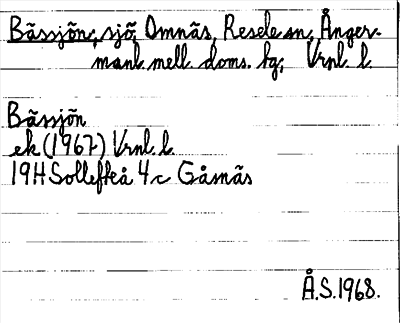 Bässjön, sjö, Omnäs, Resele sn, Ånger-
manl. mell. doms. hg, Vrnl. l.
Bässjön
ek (1967) Vrnl. l.
19H Sollefteå 4c Gåsnäs
Å.S. 1968.